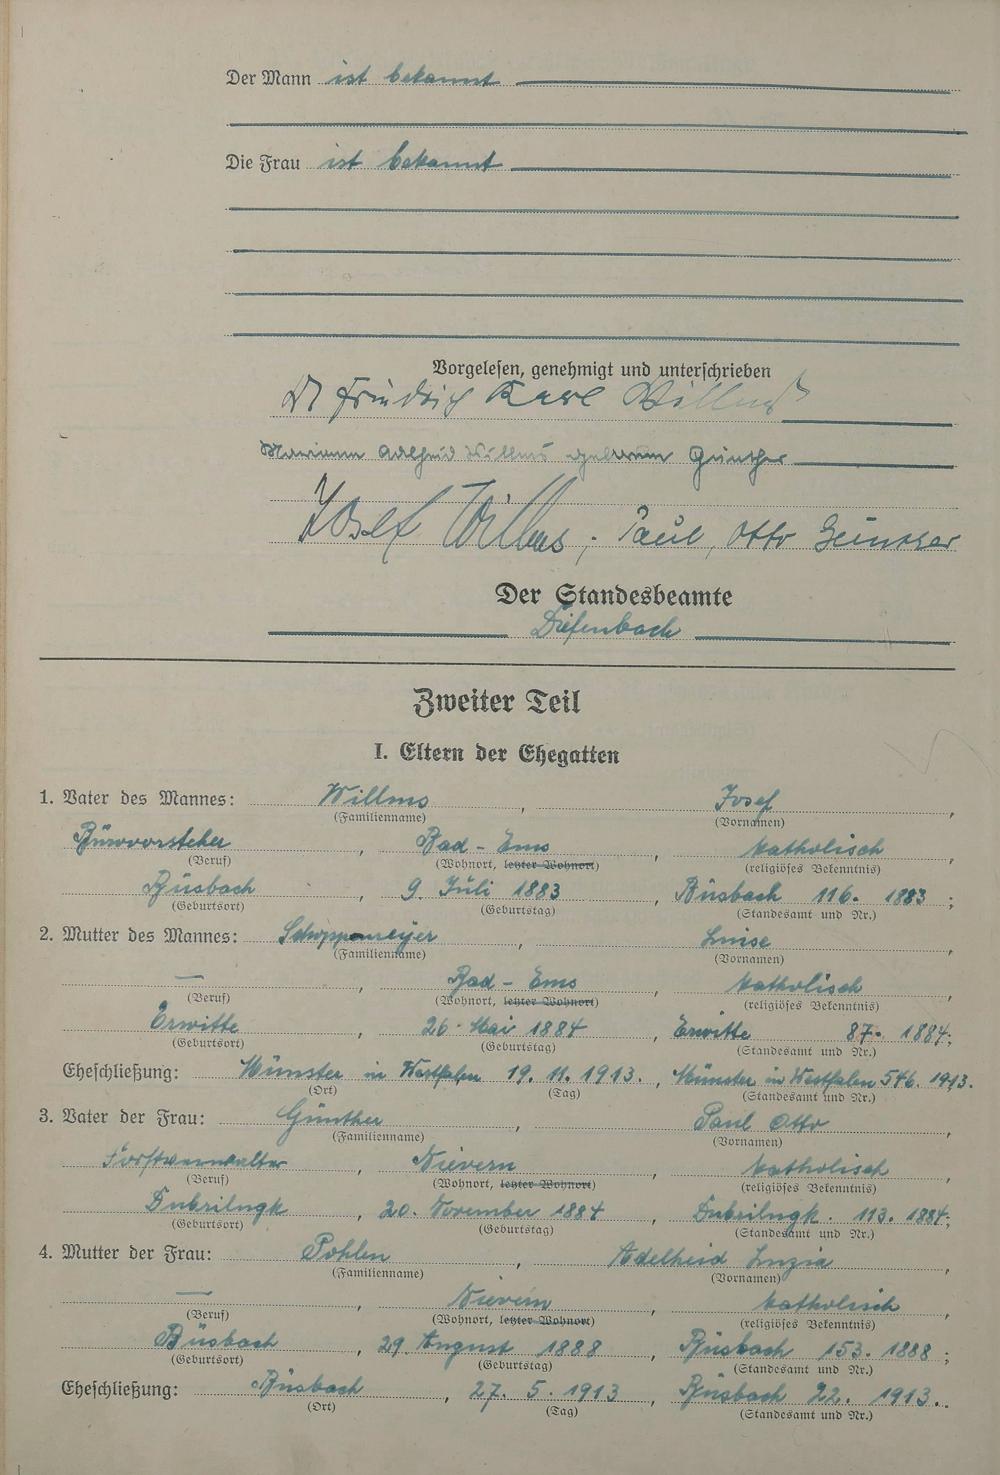 Der Mann ist bekannt
Die Frau ist bekannt
Vorgelesen, genehmigt und unterschrieben
Dr Friedrich Karl Willms
Mariann Adelheid Willms geborene Günther
Josef Willms, Paul, Otto Günther
Der Standesbeamte
Diefenbach
Zweiter Teil
I. Eltern der Ehegatten
1. Vater des Mannes: Willms, Josef,
(Familienname) (Vornamen)
Bürovorsteher, Bad-Ems, katholisch,
(Beruf) (Wohnort, letzter Wohnort) (religiöses Bekenntnis)
Büsbach, 9. Juli 1883, Büsbach 116. 1883;
(Geburtsort) (Geburtstag) (Standesamt und Nr.)
2. Mutter des Mannes: Schoppmeyer, Luise,
(Familienname) (Vornamen)
—, Bad-Ems, katholisch,
(Beruf) (Wohnort, letzter Wohnort) (religiöses Bekenntnis)
Erwitte, 26. Mai 1884, Erwitte 87. 1884;
(Geburtsort) (Geburtstag) (Standesamt und Nr.)
Eheschließung: Münster in Westfalen 19. 11. 1913., Münster in Westfalen 546. 1913.
(Ort) (Tag) (Standesamt und Nr.)
3. Vater der Frau: Günther, Paul Otto,
(Familienname) (Vornamen)
Forstverwalter, Nievern, katholisch,
(Beruf) (Wohnort, letzter Wohnort) (religiöses Bekenntnis)
Dobrilugk, 20. November 1884, Dobrilugk. 113. 1884;
(Geburtsort) (Geburtstag) (Standesamt und Nr.)
4. Mutter der Frau: Pohlen, Adelheid Luzia,
(Familienname) (Vornamen)
—, Nievern, katholisch,
(Beruf) (Wohnort, letzter Wohnort) (religiöses Bekenntnis)
Büsbach, 29. August 1888, Büsbach 153. 1888;
(Geburtsort) (Geburtstag) (Standesamt und Nr.)
Eheschließung: Büsbach, 27. 5. 1913, Büsbach 22. 1913.
(Ort) (Tag) (Standesamt und Nr.)